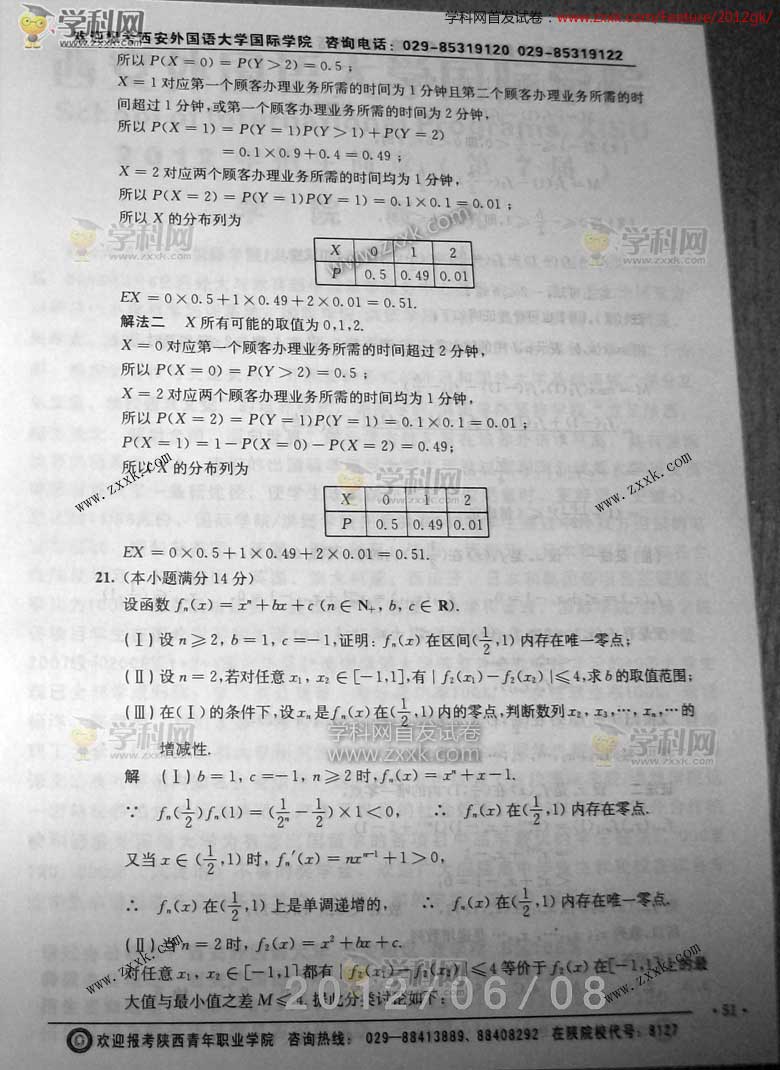 学科网首发试卷：http://www.zxxk.com/feature/2012gk/
欢迎报考西安外国语大学国际学院 咨询电话：029-85319120 029-85319122
所以 P(X = 0) = P(Y > 2) = 0.5；
X = 1 对应第一个顾客办理业务所需的时间为 1 分钟且第二个顾客办理业务所需的时
间超过 1 分钟,或第一个顾客办理业务所需的时间为 2 分钟,
所以 P(X = 1) = P(Y = 1)P(Y > 1) + P(Y = 2)
= 0.1×0.9+0.4 = 0.49；
X = 2 对应两个顾客办理业务所需的时间均为 1 分钟,
所以 P(X = 2) = P(Y = 1)P(Y = 1) = 0.1×0.1 = 0.01；
所以 X 的分布列为
X 0 1 2
P 0.5 0.49 0.01
EX = 0×0.5+1×0.49+2×0.01 = 0.51.
解法二 X 所有可能的取值为 0,1,2.
X = 0 对应第一个顾客办理业务所需的时间超过 2 分钟,
所以 P(X = 0) = P(Y > 2) = 0.5；
X = 2 对应两个顾客办理业务所需的时间均为 1 分钟,
所以 P(X = 2) = P(Y = 1)P(Y = 1) = 0.1×0.1 = 0.01；
P(X = 1) = 1 − P(X = 0) − P(X = 2) = 0.49；
所以 X 的分布列为
X 0 1 2
P 0.5 0.49 0.01
EX = 0×0.5+1×0.49+2×0.01 = 0.51.
21. (本小题满分 14 分)
设函数 fₙ(x) = xⁿ + bx + c (n ∈ N₊, b, c ∈ R).
(Ⅰ) 设 n ≥ 2, b = 1, c = −1,证明: fₙ(x) 在区间(1/2,1) 内存在唯一零点；
(Ⅱ) 设 n = 2,若对任意 x₁, x₂ ∈ [−1,1],有 | f₂(x₁) − f₂(x₂) | ≤ 4,求 b 的取值范围；
(Ⅲ) 在(Ⅰ)的条件下,设 xₙ 是 fₙ(x) 在(1/2,1)内的零点,判断数列 x₂, x₃, ⋯, xₙ, ⋯ 的
增减性.
解 (Ⅰ) b = 1, c = −1, n ≥ 2 时, fₙ(x) = xⁿ + x − 1.
∵ fₙ(1/2) fₙ(1) = (1/2ⁿ − 1/2) × 1 < 0, ∴ fₙ(x) 在(1/2,1) 内存在零点.
又当 x ∈ (1/2,1) 时, fₙ′(x) = nxⁿ⁻¹ + 1 > 0,
∴ fₙ(x) 在(1/2,1) 上是单调递增的, ∴ fₙ(x) 在(1/2,1) 内存在唯一零点.
(Ⅱ) 当 n = 2 时, f₂(x) = x² + bx + c.
对任意 x₁, x₂ ∈ [−1,1] 都有 | f₂(x₁) − f₂(x₂) | ≤ 4 等价于 f₂(x) 在 [−1,1] 上的最
大值与最小值之差 M ≤ 4. 据此分类讨论如下：
2012/06/08
· 51 ·
欢迎报考陕西青年职业学院 咨询热线： 029—88413889、88408292 在陕院校代号：8127
学科网
www.zxxk.com
学科网
www.zxxk.com
www.zxxk.com
学科网
www.zxxk.com
www.zxxk.com
www.zxxk.com
学科网
www.zxxk.com
学科网首发试卷
www.zxxk.com
学科网
www.zxxk.com
www.zxxk.com
www.zxxk.com